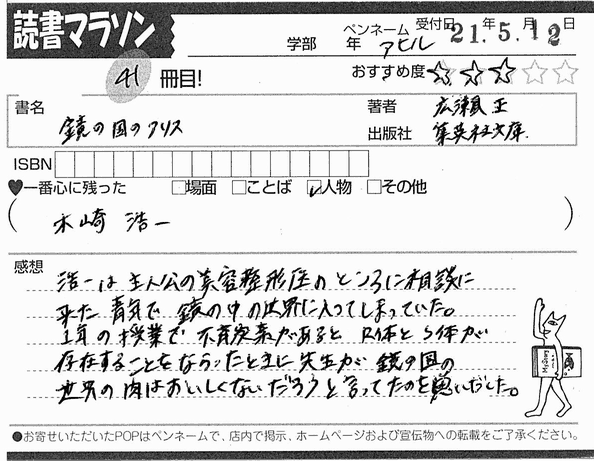 読書マラソン
学部 年 ペンネーム アヒル 受付日 21年5月12日
41 冊目!
おすすめ度 ★★★☆☆
書名 鏡の国のアリス
著者 広瀬正
出版社 集英社文庫
ISBN
♥一番心に残った □場面 □ことば ☑人物 □その他
( 木崎 浩一 )
感想
浩一は主人公の美容整形医のところに相談に
来た青年で鏡の中の世界に入ってしまっていた。
1年の授業で不斉炭素があるとR体とS体が
存在することをならったときに先生が鏡の国の
世界の肉はおいしくないだろうと言ってたのを思いだした。
●お寄せいただいたPOPはペンネームで、店内で掲示、ホームページおよび宣伝物への転載をご了承ください。